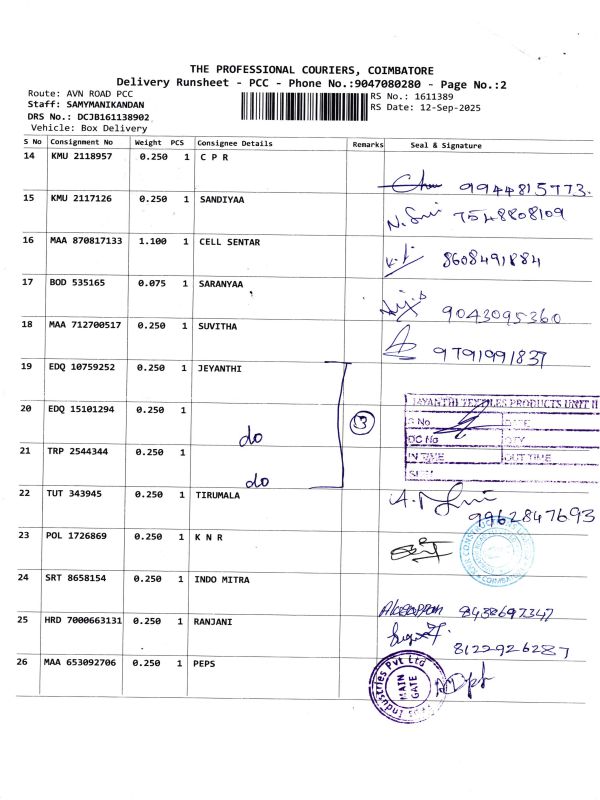 THE PROFESSIONAL COURIERS, COIMBATORE
Delivery Runsheet - PCC - Phone No.:9047080280 - Page No.:2
Route: AVN ROAD PCC
RS No.: 1611389
Staff: SAMYMANIKANDAN
RS Date: 12-Sep-2025
DRS No.: DCJB161138902
Vehicle: Box Delivery
S No Consignment No Weight PCS Consignee Details Remarks Seal & Signature
14 KMU 2118957 0.250 1 C P R
9944815773.
15 KMU 2117126 0.250 1 SANDIYAA
7548808109
16 MAA 870817133 1.100 1 CELL SENTAR
8608491884
17 BOD 535165 0.075 1 SARANYAA
9043095360
18 MAA 712700517 0.250 1 SUVITHA
9791991837
19 EDQ 10759252 0.250 1 JEYANTHI
JAYANTHI TEXTILES PRODUCTS UNIT II
20 EDQ 15101294 0.250 1 do
3
S No DATE
DC No QTY
IN TIME OUT TIME
SIGN
21 TRP 2544344 0.250 1 do
22 TUT 343945 0.250 1 TIRUMALA
9962847693
23 POL 1726869 0.250 1 K N R
COIMBATORE
24 SRT 8658154 0.250 1 INDO MITRA
9438697347
25 HRD 7000663131 0.250 1 RANJANI
8122926287
26 MAA 653092706 0.250 1 PEPS
Industries Pvt Ltd
MAIN GATE